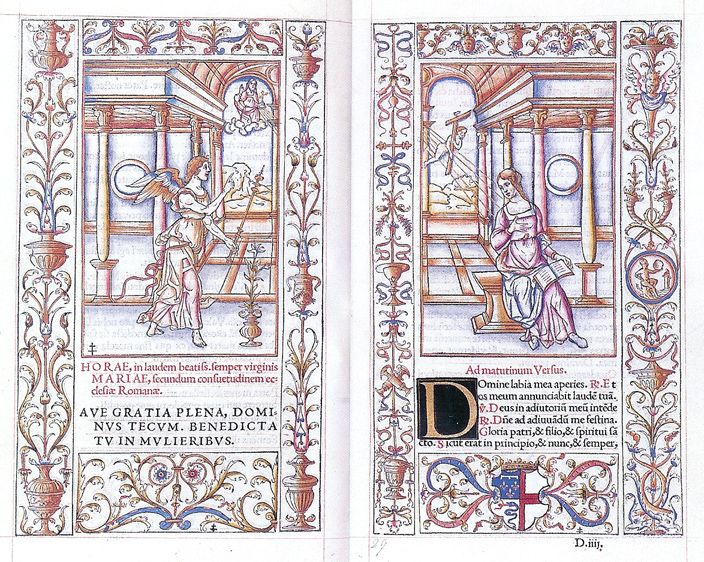 HORAE, in laudem beatiss. semper virginis
MARIAE, secundum consuetudinem ec-
clesiæ Romanæ.
AVE GRATIA PLENA, DOMI-
NVS TECVM. BENEDICTA
TV IN MVLIERIBVS.
Ad matutinum Versus.
DOmine labia mea aperies. ℟. Et
os meum annunciabit laudē tuā.
℣. Deus in adiutoriū meū intēde
℟. Dñe ad adiuuādū me festina.
Gloria patri, & filio, & spiritui sā
cto. Sicut erat in principio, & nunc, & semper,
D.iiij.